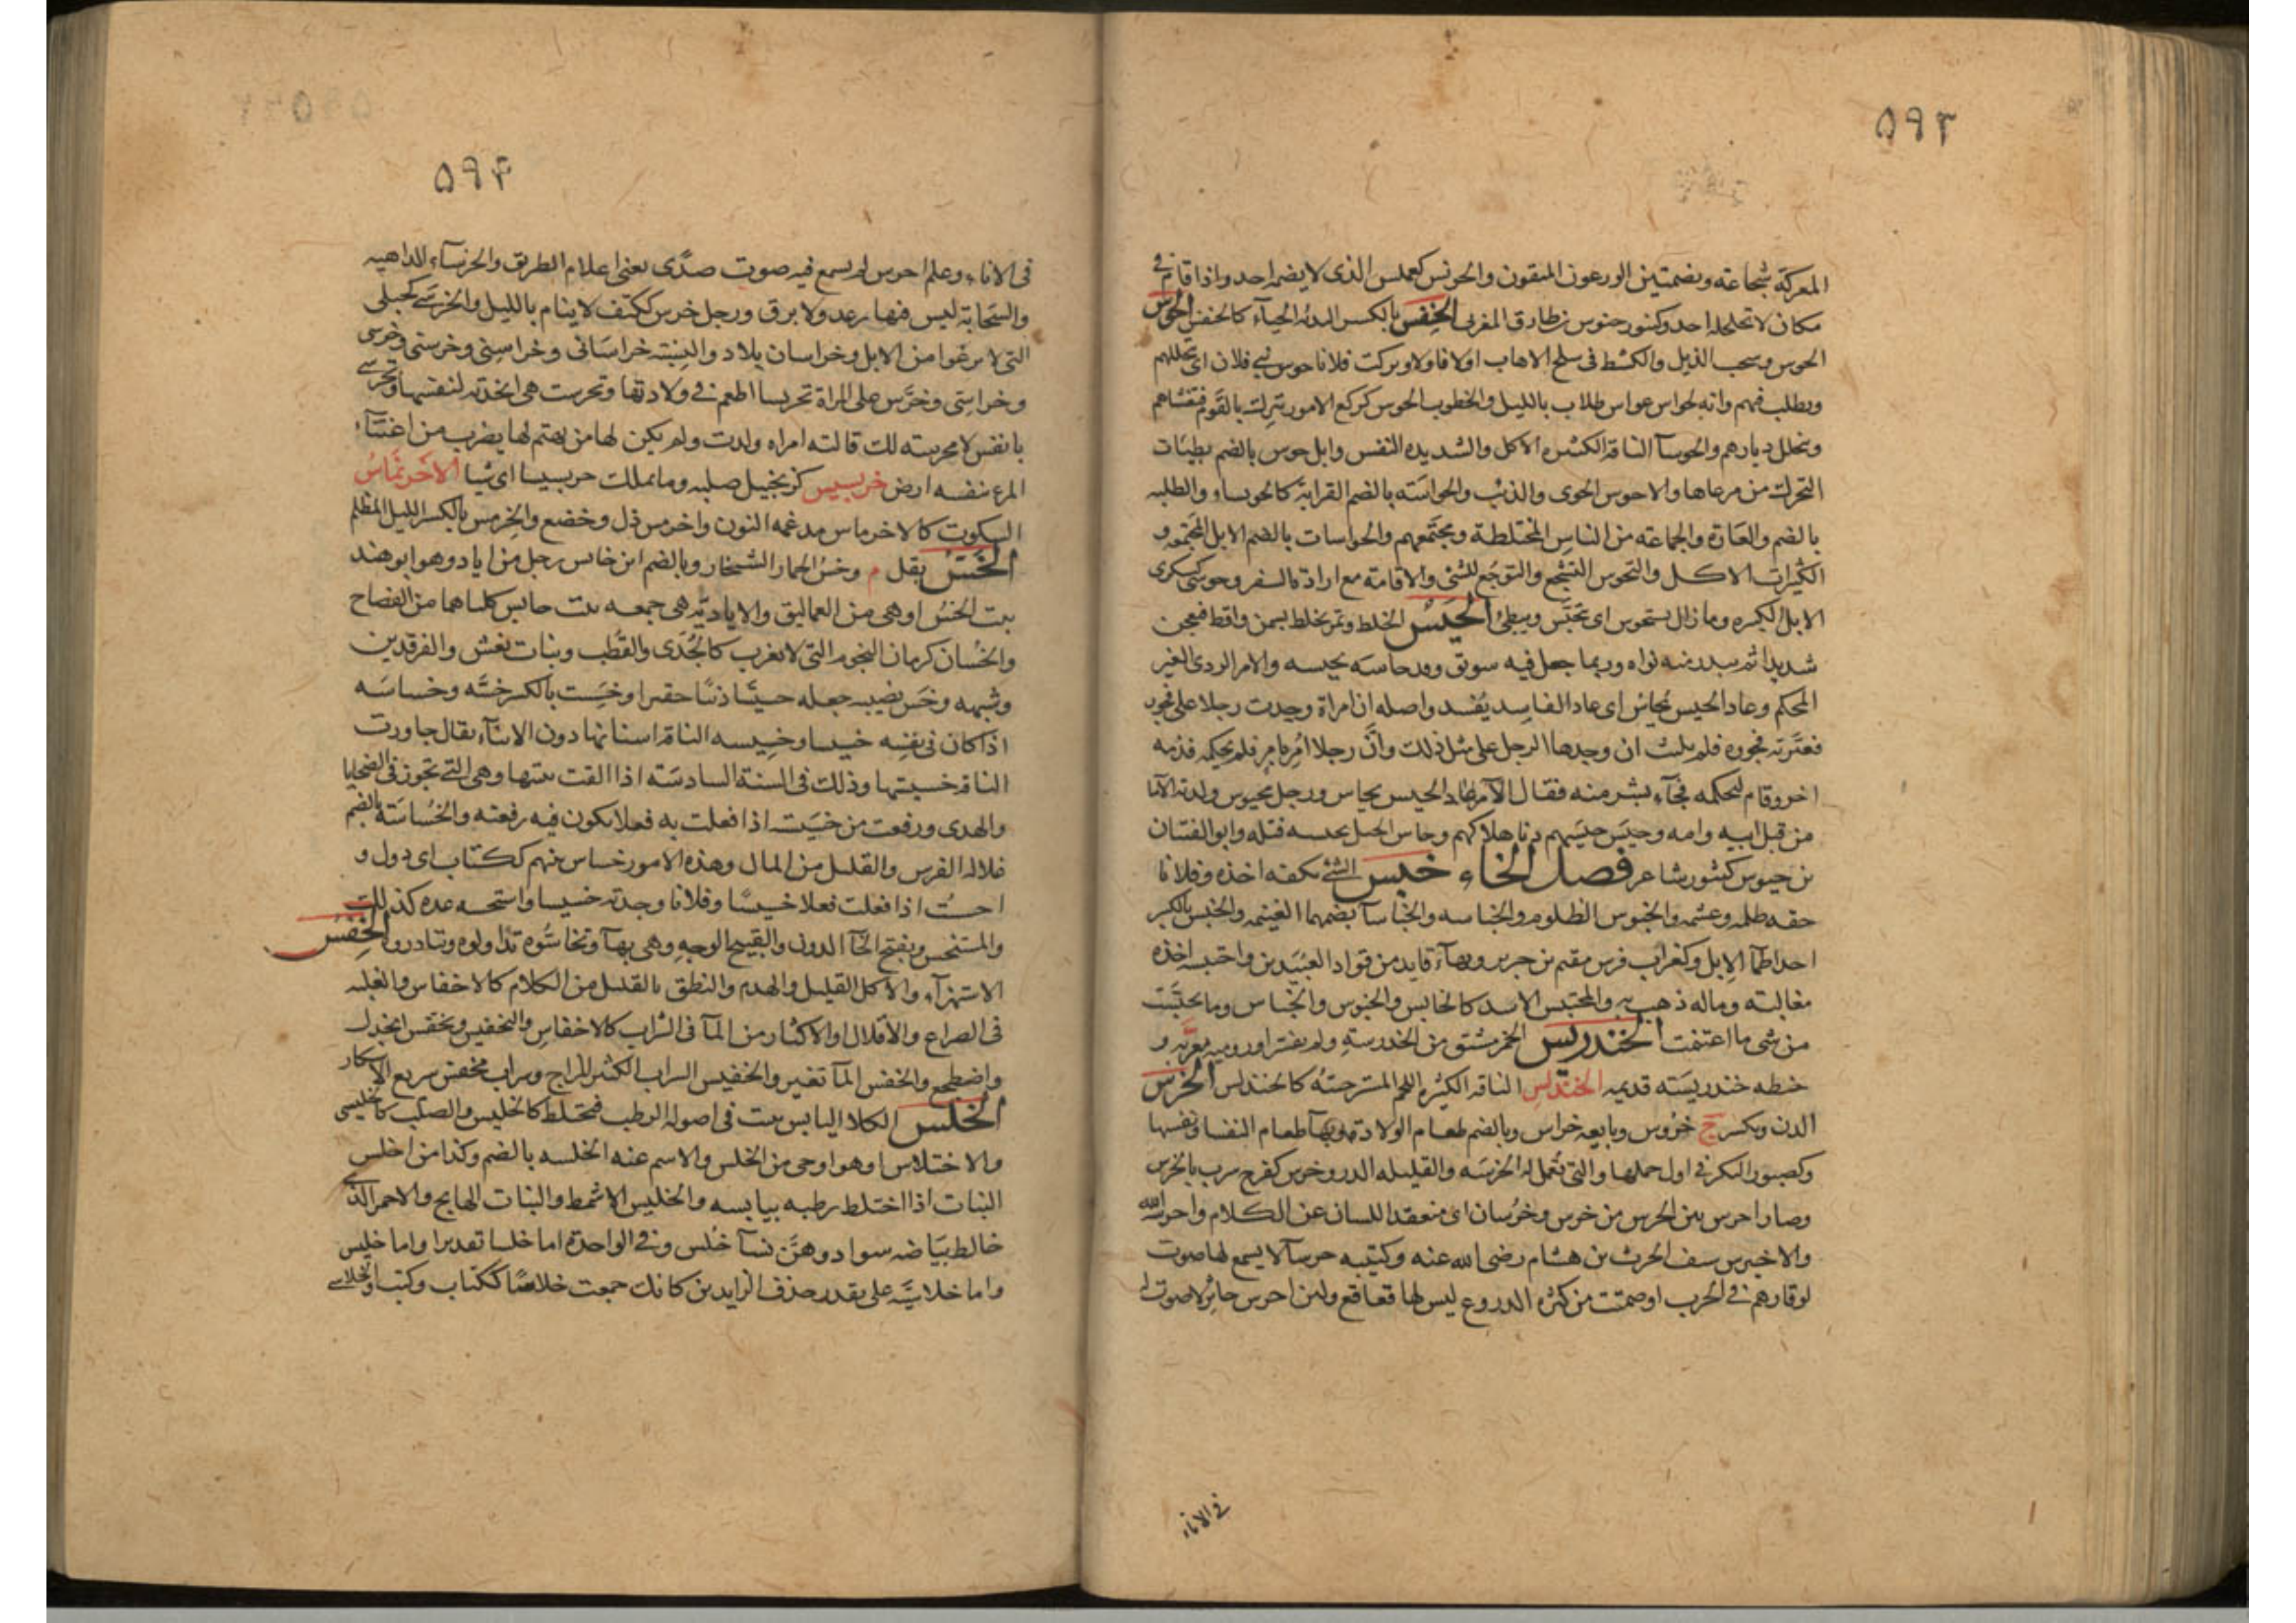 ۵۹۳
المعركة شجاعته وبضمتين الورعون المتقون والحونس كعملس الذى لا يضمه احد واذا قام فى
مكان لا تحلحله احد وكنور حنوس بن طارق المغربى الحنفس بالكسر البدئه الحياء كالحفنس الحوس
الحوس وسحب الذيل والكشط فى سلخ الاهاب اولا فاولا وتركت فلانا حوس بنى فلان اى تخللهم
ويطلب فيهم وانه لحواس عواس طلاب بالليل والخطوب الحوس كركع الامور تنزل بالقوم فتغشاهم
وتخلل ديارهم والحوسآ الناقة الكثيره الاكل والشديده النفس وابل حوس بالضم بطيئات
التحرك من مرعاها والاحوس الجرى والذئب والحواسته بالضم القرابة كالحويساء والطلبه
بالضم والغارة والجماعة من الناس المختلطة ومجتمعهم والحواسات بالضم الابل المجتمعه و
الكثيرات الاكل والتحوس التشجع والتوجع للشئ والاقامة مع ارادة السفر وحوسى كسكرى
الابل الكثيره وما زال يستحوس اى تحبس ويبطئ الحيس الخلط وتمر يخلط بسمن واقط فيعجن
شديدا ثم يبدر منه نواه وربما جعل فيه سويق وقد حاسه يحيسه والامر الردى الغير
المحكم وعاد الحيس يحاس اى عاد الفاسد يفسد واصله ان امراة وجدت رجلا على فجور
فعيرته فجوره فلم يلبث ان وجدها الرجل على مثل ذلك وان رجلا امر بامر فلم يحكمه فذمه
اخر وقام ليحكمه فجآء بشر منه فقال الآمر عاد الحيس يحاس ورجل محيوس ولدته الاما
من قبل ابيه وامه وحيس حيسهم دنا هلاكهم وحاس الحبل يحيسه فتله وابو الفتيان
بن حيوس كتنور شاعر فصل الخاء خبس الشئ بكفه اخذه وفلانا
حقه ظلمه وغشمه والخبوس الظلوم والخباسه والخباسآ بضمهما الغنيمه والخبس بالكسر
احد اظمآ الابل وكغراب فرس فقيم بن جرير وبهآء قايد من قواد العبيديين واختبسه اخذه
مغالبته وماله ذهب به والمختبس الاسد كالخابس والخبوس والخباس وما تخبست
من شى ما اغتنمت الخندريس الخمر مشتق من الخدرسة ولم يفسر او روميه معربه و
حنطه خندريسته قديمه الخندلس الناقة الكثيره اللحم المسترخية كالحندلس الخرس
الدن ويكسر ج خروس وبايعه خراس وبالضم طعام الولادة وبهآ طعام النفسا ونفسها
وكصبور البكر فى اول حملها والتى تعمل لها الخرسه والقليله الدر وخرس كفرح شرب بالخرس
وصار اخرس بين الخرس من خرس وخرسان اى منعقد اللسان عن الكلام واخرسه الله
والاخيرس سيف الحرث بن هشام رضى الله عنه وكتيبه خرسآ لا يسمع لها صوت
لوقارهم فى الحرب او صمتت من كثره الدروع ليس لها قعاقع ولبن اخرس خاثر لا صوت له
فى الاناء
۵۹۴
فى الاناء وعلم اخرس لم يسمع فيه صوت صدى يعنى اعلام الطريق والخرسآء الداهيه
والسحابة ليس فيها رعد ولا برق ورجل خرس ككتف لا ينام بالليل والخرسى كحبلى
التى لا ترغوا من الابل وخراسان بلاد والنسبته خراسانى وخراسنى وخرسنى وخرسى
وخراسى وخرس على المراة تخريسا اطعم فى ولادتها وتخرست هى اتخذته لنفسها وتخرسى
يا نفس لا مخرسته لك قالته امراه ولدت ولم يكن لها من يهتم لها يضرب من اعتنآء
المرء بنفسه ارض خربسيس كزنجبيل صلبه وما يملك خربسيسا اى شيا الاخرنماس
السكوت كالاخرماس مدغمه النون واخرمس ذل وخضع والخرمس بالكسر الليل المظلم
الخس بقل م وخس الحمار الشنجار وبالضم ابن حابس رجل من اياد وهو ابو هند
بنت الخس او هى من العماليق والاياديه هى جمعه بنت حابس كلتاهما من الفصاح
والخسان كرمان النجوم التى لا تغرب كالجدى والقطب وبنات نعش والفرقدين
وشبهه وخس نصيبه جعله خسيسا دنيا حقيرا وخسست بالكسر خسه وخساسه
اذا كان فى نفسه خسيسا وخسيسه الناقة اسنانها دون الاثنآء يقال جاوزت
الناقة خسيستها وذلك فى السنة السادسه اذا القت ثنيتها وهى التى تجوز فى الضحايا
والهدى ورفعت من خسيسته اذا فعلت به فعلا يكون فيه رفعته والخساسة بالضم
علاله الفرس والقليل من المال وهذه الامور خساس بينهم ككتاب اى دول و
اخسست اذا فعلت فعلا خسيسا وفلانا وجدته خسيسا واستخسه عده كذلك
والمستخس وبفتح الخآ الدون والقبيح الوجه وهى بهآ وتخاسوه تداولوه وتبادروا الخفس
الاستهزآء والاكل القليل والهدم والنطق بالقليل من الكلام كالاخفاس والغلبه
فى الصراع والاقلال او الاكثار من المآ فى الشراب كالاخفاس والتخفيس وتخفس انجدل
واضطجع والخفس المآ تغير والخفيس الشراب الكثير المزاج وشراب مخفس سريع الاسكار
الخلس الكلا اليابس نبت فى اصوله الرطب فيختلط كالخليس والصلب كالخليسى
والاختلاس او هو اوحى من الخلس والاسم عنه الخلسه بالضم وكذا من اخلس
النبات اذا اختلط رطبه بيابسه والخليس الاشمط والنبات الهايج والاحمر الذى
خالط بياضه سواد وهن نسآ خلس وفى الواحدة اما خلسا تقديرا واما خليس
واما خلاسيه على تقدير حذف الزايدين كانك جمعت خلاسا ككتاب وكتب والخلاسى